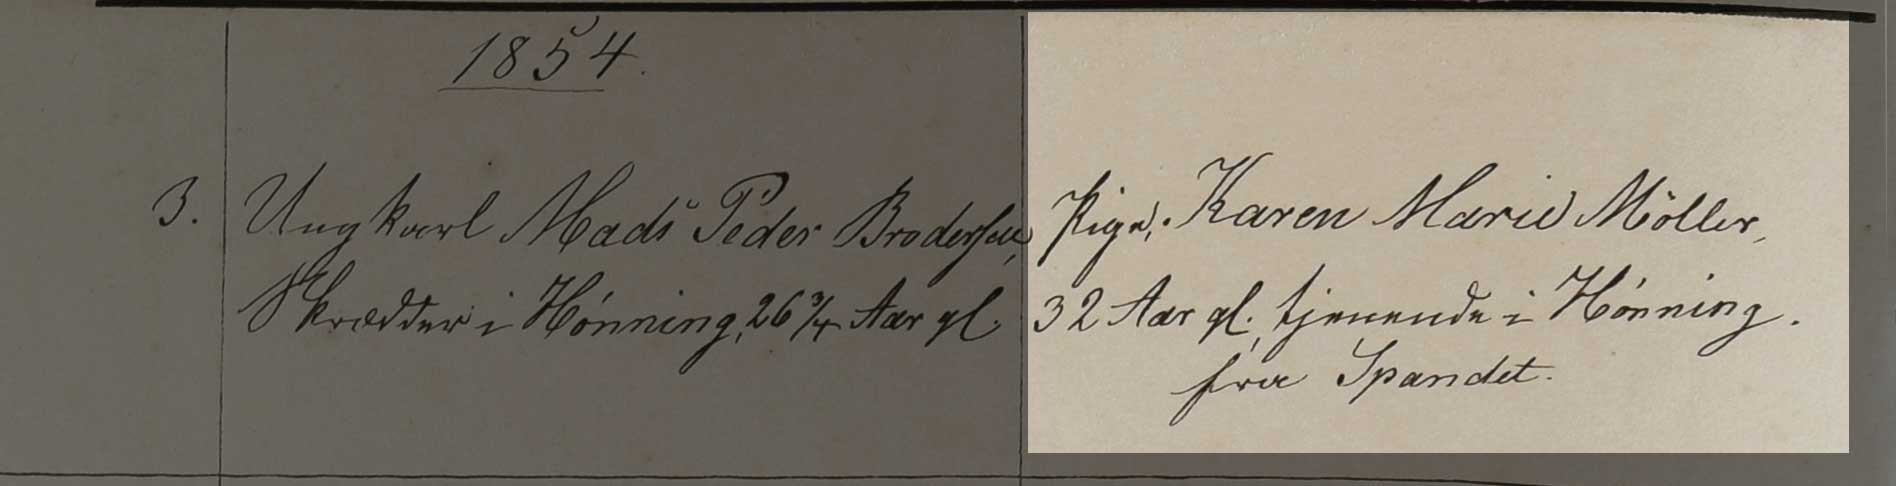 1854.
3. Ungkarl Mads Peder Brodersen,
Skrædder i Hönning, 26 3/4 Aar gl.
Pige, Karen Marie Möller,
32 Aar gl., tjenende i Hönning.
fra Spandet.